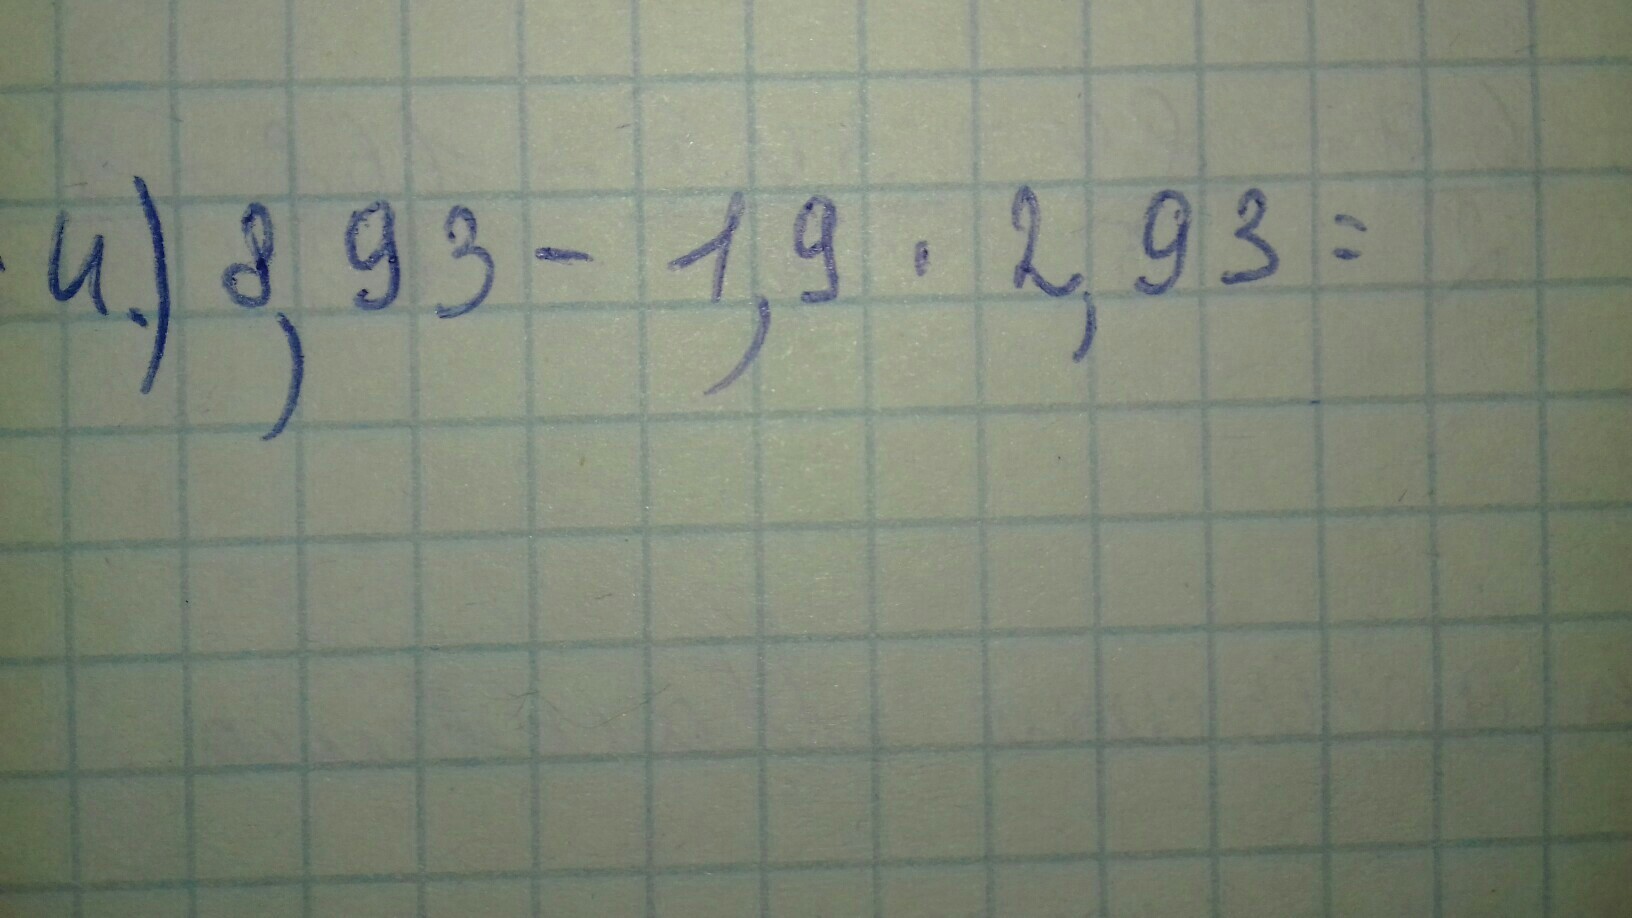 4.) 8,93 - 1,9 · 2,93 =